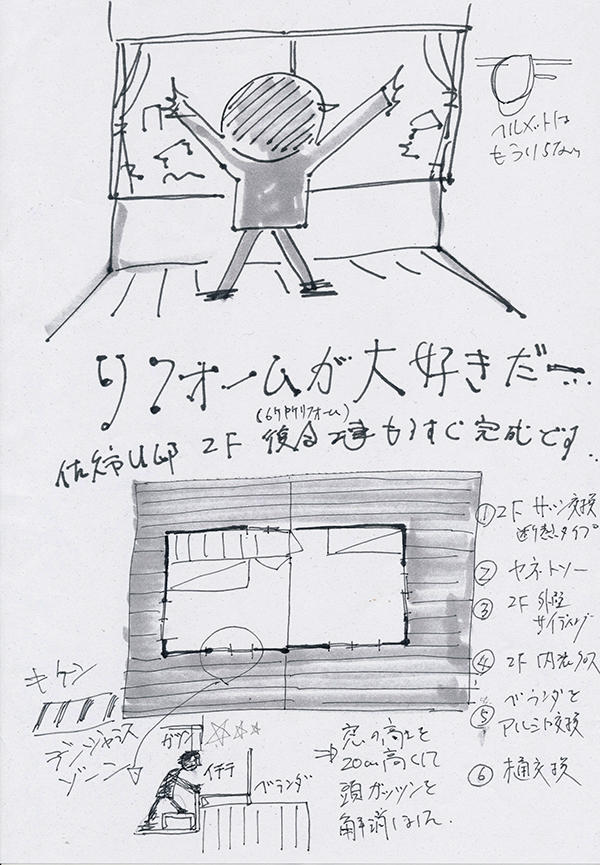 ヘルメットは
もういらない
リフォームが大好きだー…
(6ケ所リフォーム)
U邸 2F 工事もうすぐ完成です..
① 2F サッシ交換
断熱タイプ
② ヤネトソー
③ 2F 外壁
サイディング
④ 2F 内装クロス
⑤ ベランダを
アルミに交換
⑥ 樋交換
キケン
デンジャラス
ゾーン
ガツン
イテテ
ベランダ
⇒ 窓の高さを
20cm高くして
頭ガッツンを
解消しました.